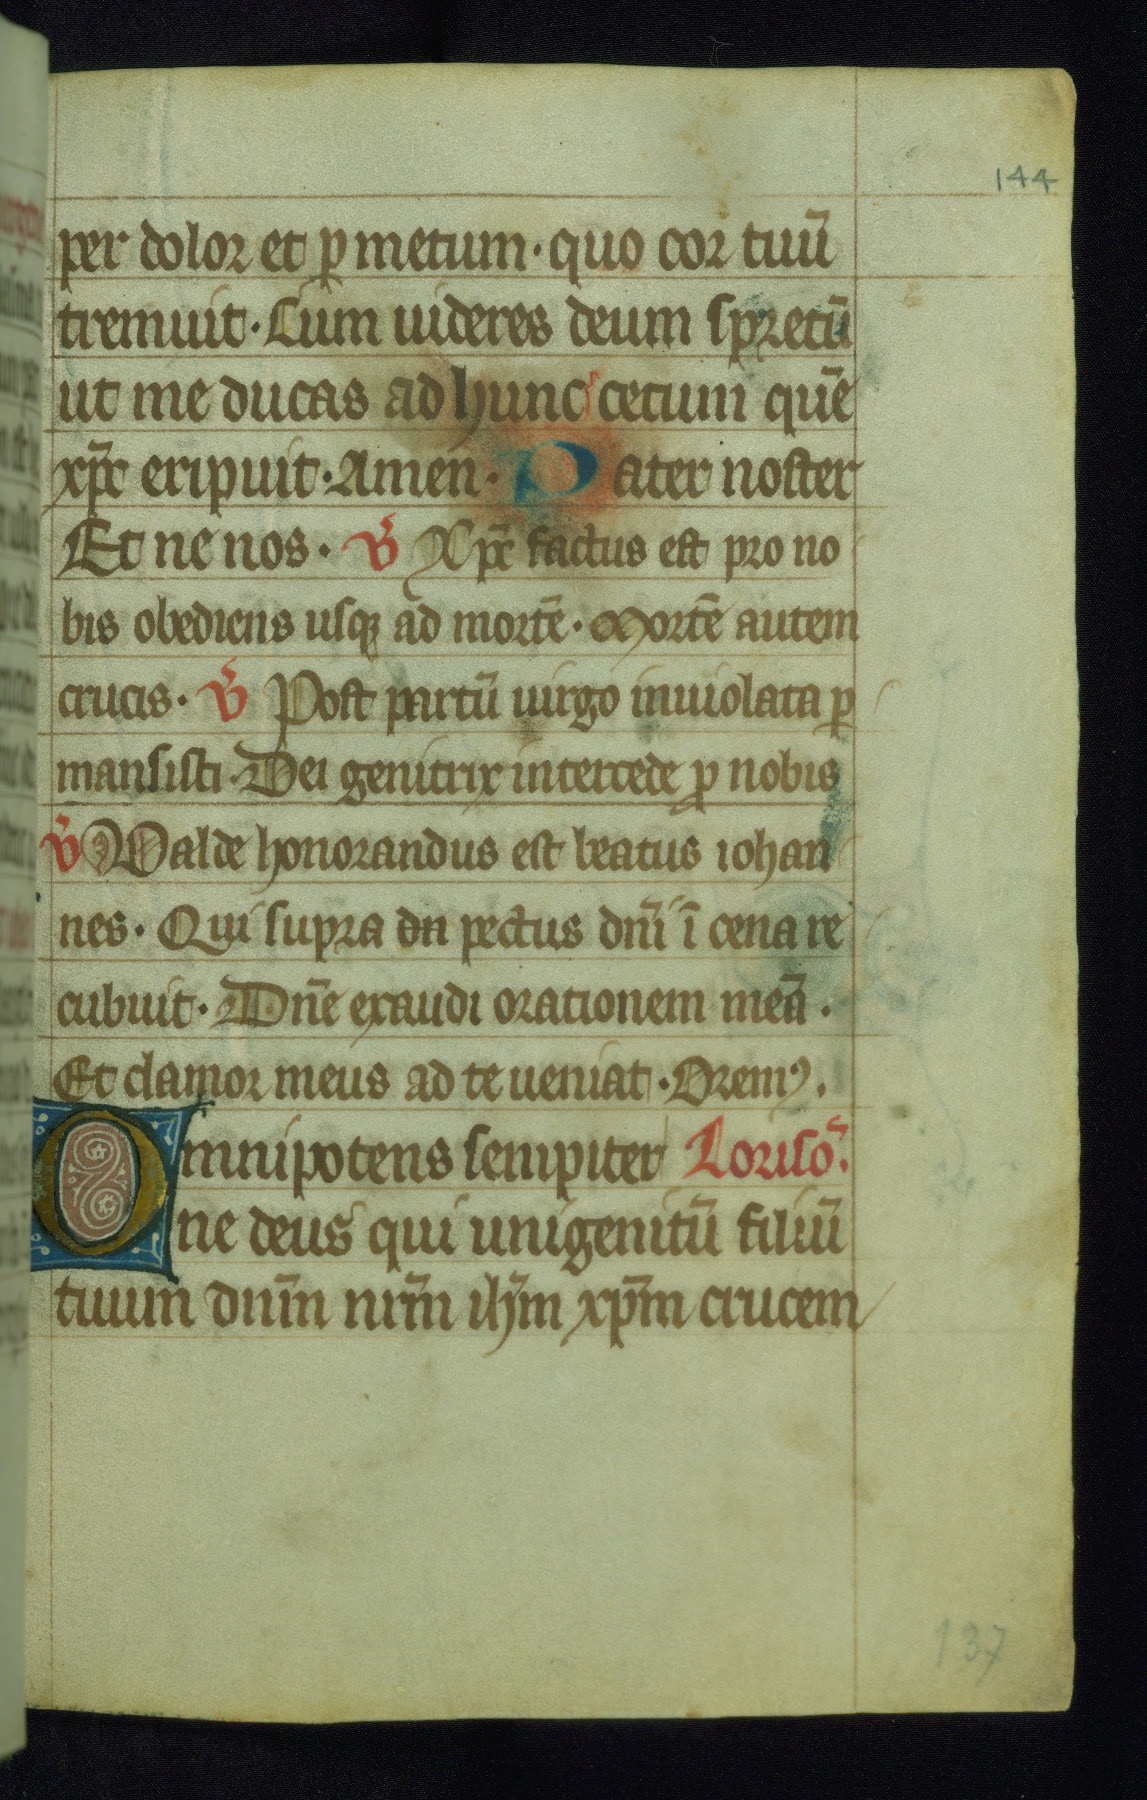 144
per dolor et ꝑ metum · quo cor tuū
tremuit · Cum uideres deum spretū
ut me ducas ad hunc cetum quē
xp̄c eripuit · Amen · Pater noster
Et ne nos · v̄ Xp̄c factus est pro no
bis obediens usqꝫ ad mortē · Mortē autem
crucis · v̄ Post partū uirgo inuiolata ꝑ
mansisti · Dei genitrix intercede ꝓ nobis
v̄ Walde honorandus est beatus iohan
nes · Qui supra dn pectus dn̄i ī cena re
cubuit · Dn̄e exaudi orationem meā ·
Et clamor meus ad te ueniat · Oremꝰ.
Omnipotens sempiter
ne deus qui unigenitū filiū
tuum dn̄m nr̄m ih̄m xp̄m crucem
137